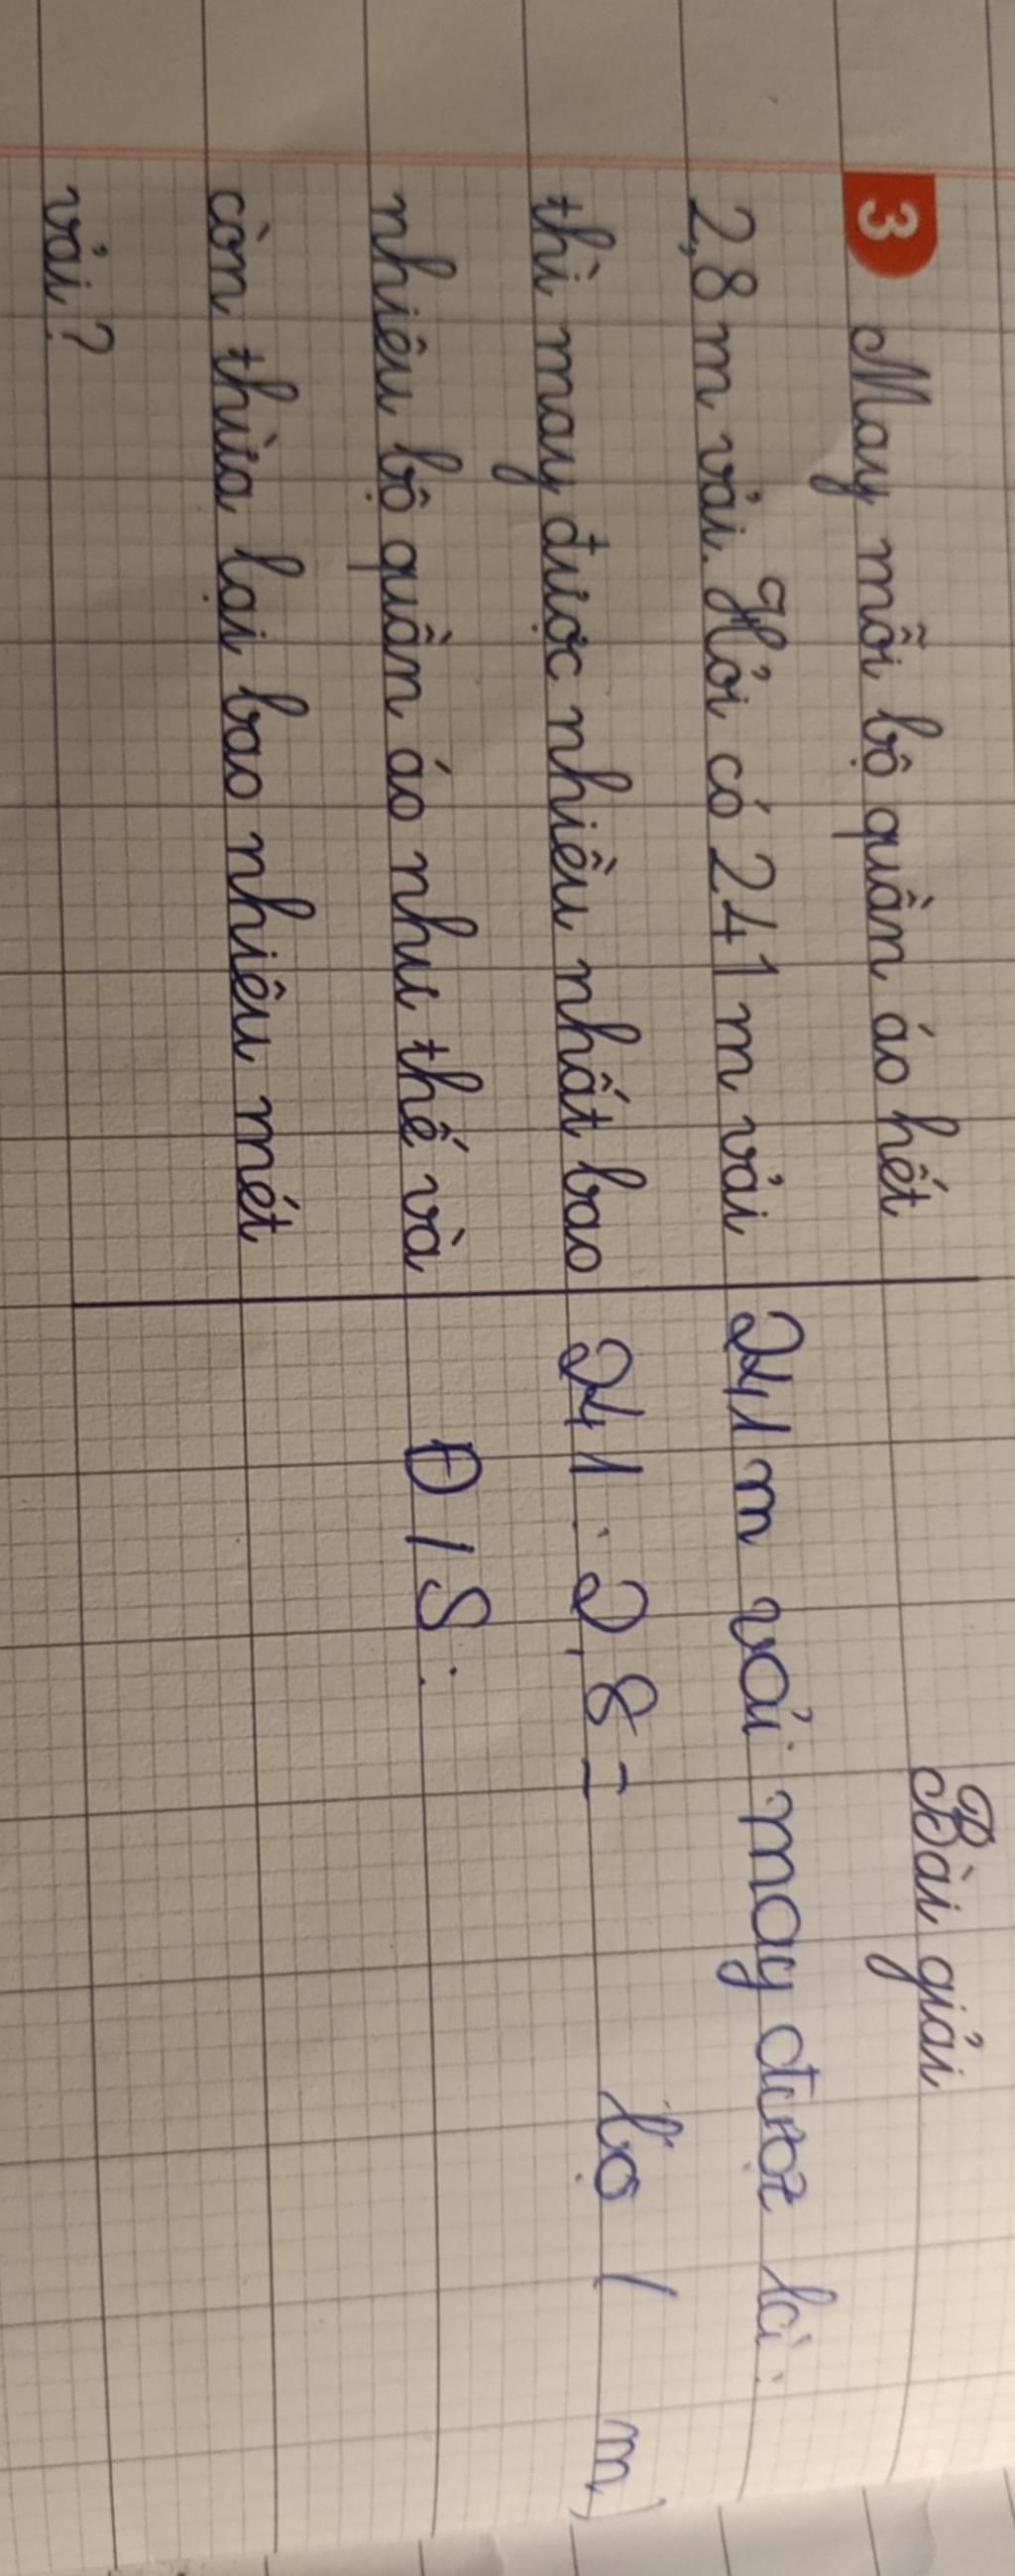 3 May mỗi bộ quần áo hết
2,8 m vải. Hỏi có 241 m vải
thì may được nhiều nhất bao
nhiêu bộ quần áo như thế và
còn thừa lại bao nhiêu mét
vải?
Bài giải
241 m vải may được là:
241 : 2,8 =
bộ / m)
Đ / S :